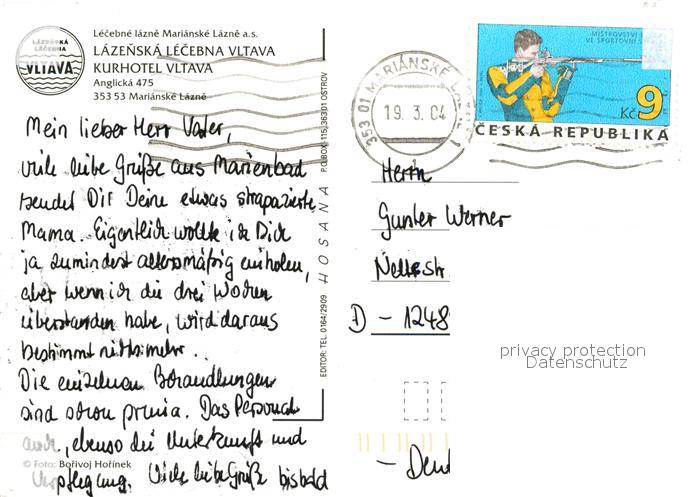 Léčebné lázně Mariánské Lázně a.s.
LÁZEŇSKÁ LÉČEBNA VLTAVA
KURHOTEL VLTAVA
Anglická 475
353 53 Mariánské Lázně
LÁZEŇSKÁ
LÉČEBNA
VLTAVA
Mein lieber Herr Vater,
viele liebe Grüße aus Marienbad
sendet Dir Deine etwas strapazierte
Mama. Eigentlich wollte ich Dich
ja zumindest altersmäßig einholen,
aber wenn ich die drei Wochen
überstanden habe, wird daraus
bestimmt nichts mehr.
Die einzelnen Behandlungen
sind schon prima. Das Personal
auch, ebenso die Unterkunft und
Verpflegung. Viele liebe Grüße bis bald
© Foto: Bořivoj Hořínek
EDITOR: TEL. 0164/2909 HOSANA P.O.BOX-115,36301 OSTROV
353 01 MARIÁNSKÉ
19. 3. 04
MISTROVSTVÍ
VE SPORTOVNÍ
Kč 9
ČESKÁ REPUBLIKA
Herrn
Gunter Werner
D - 1248
privacy protection
Datenschutz